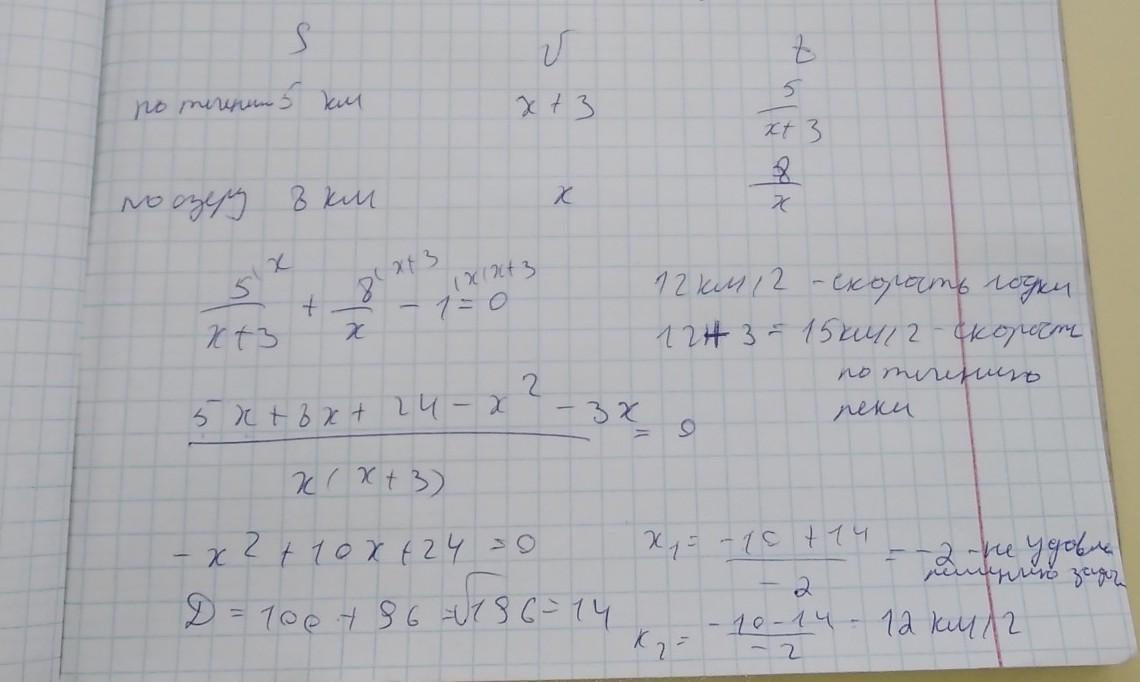 S V t
по течению 5 км x + 3 5/(x+3)
по озеру 8 км x 8/x
5/(x+3) (x + 8/x (x+3 - 1 (x(x+3 = 0
(5x + 8x + 24 - x² - 3x)/(x(x+3)) = 0
-x² + 10x + 24 = 0
D = 100 + 96 = √196 = 14
12 км/ч - скорость лодки
12 + 3 = 15 км/ч - скорость
по течению
реки
x₁ = (-10 + 14)/(-2) = -2 - не удовл
задач
x₂ = (-10 - 14)/(-2) = 12 км/ч